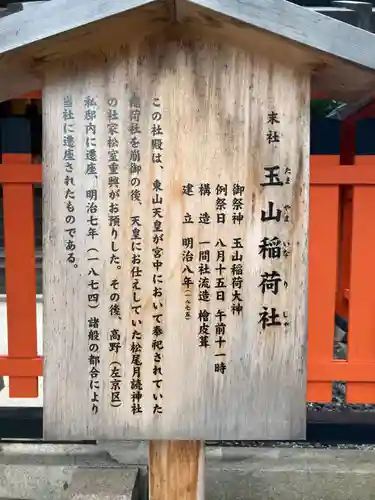 末社 玉山稲荷社
たま やま いな り しゃ
御祭神 玉山稲荷大神
例祭日 八月十五日 午前十一時
構造 一間社流造 檜皮葺
建立 明治八年(一八七五)
この社殿は、東山天皇が宮中において奉祀されていた
稲荷社を崩御の後、天皇にお仕えしていた松尾月読神社
の社家松室重興がお預りした。その後、高野(左京区)
私邸内に遷座、明治七年(一八七四)諸般の都合により
当社に遷座されたものである。